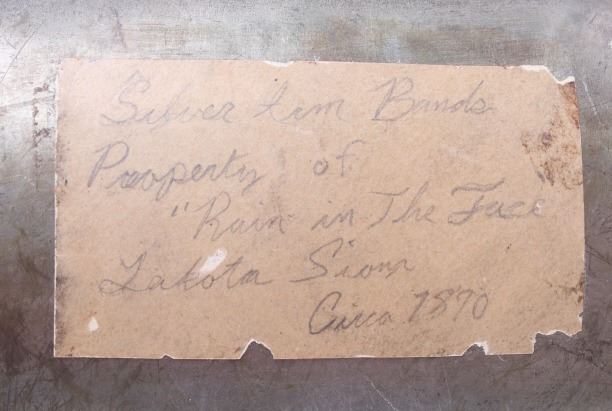 Silver Arm Bands
Property of
"Rain in The Face
Lakota Sioux
Circa 1870